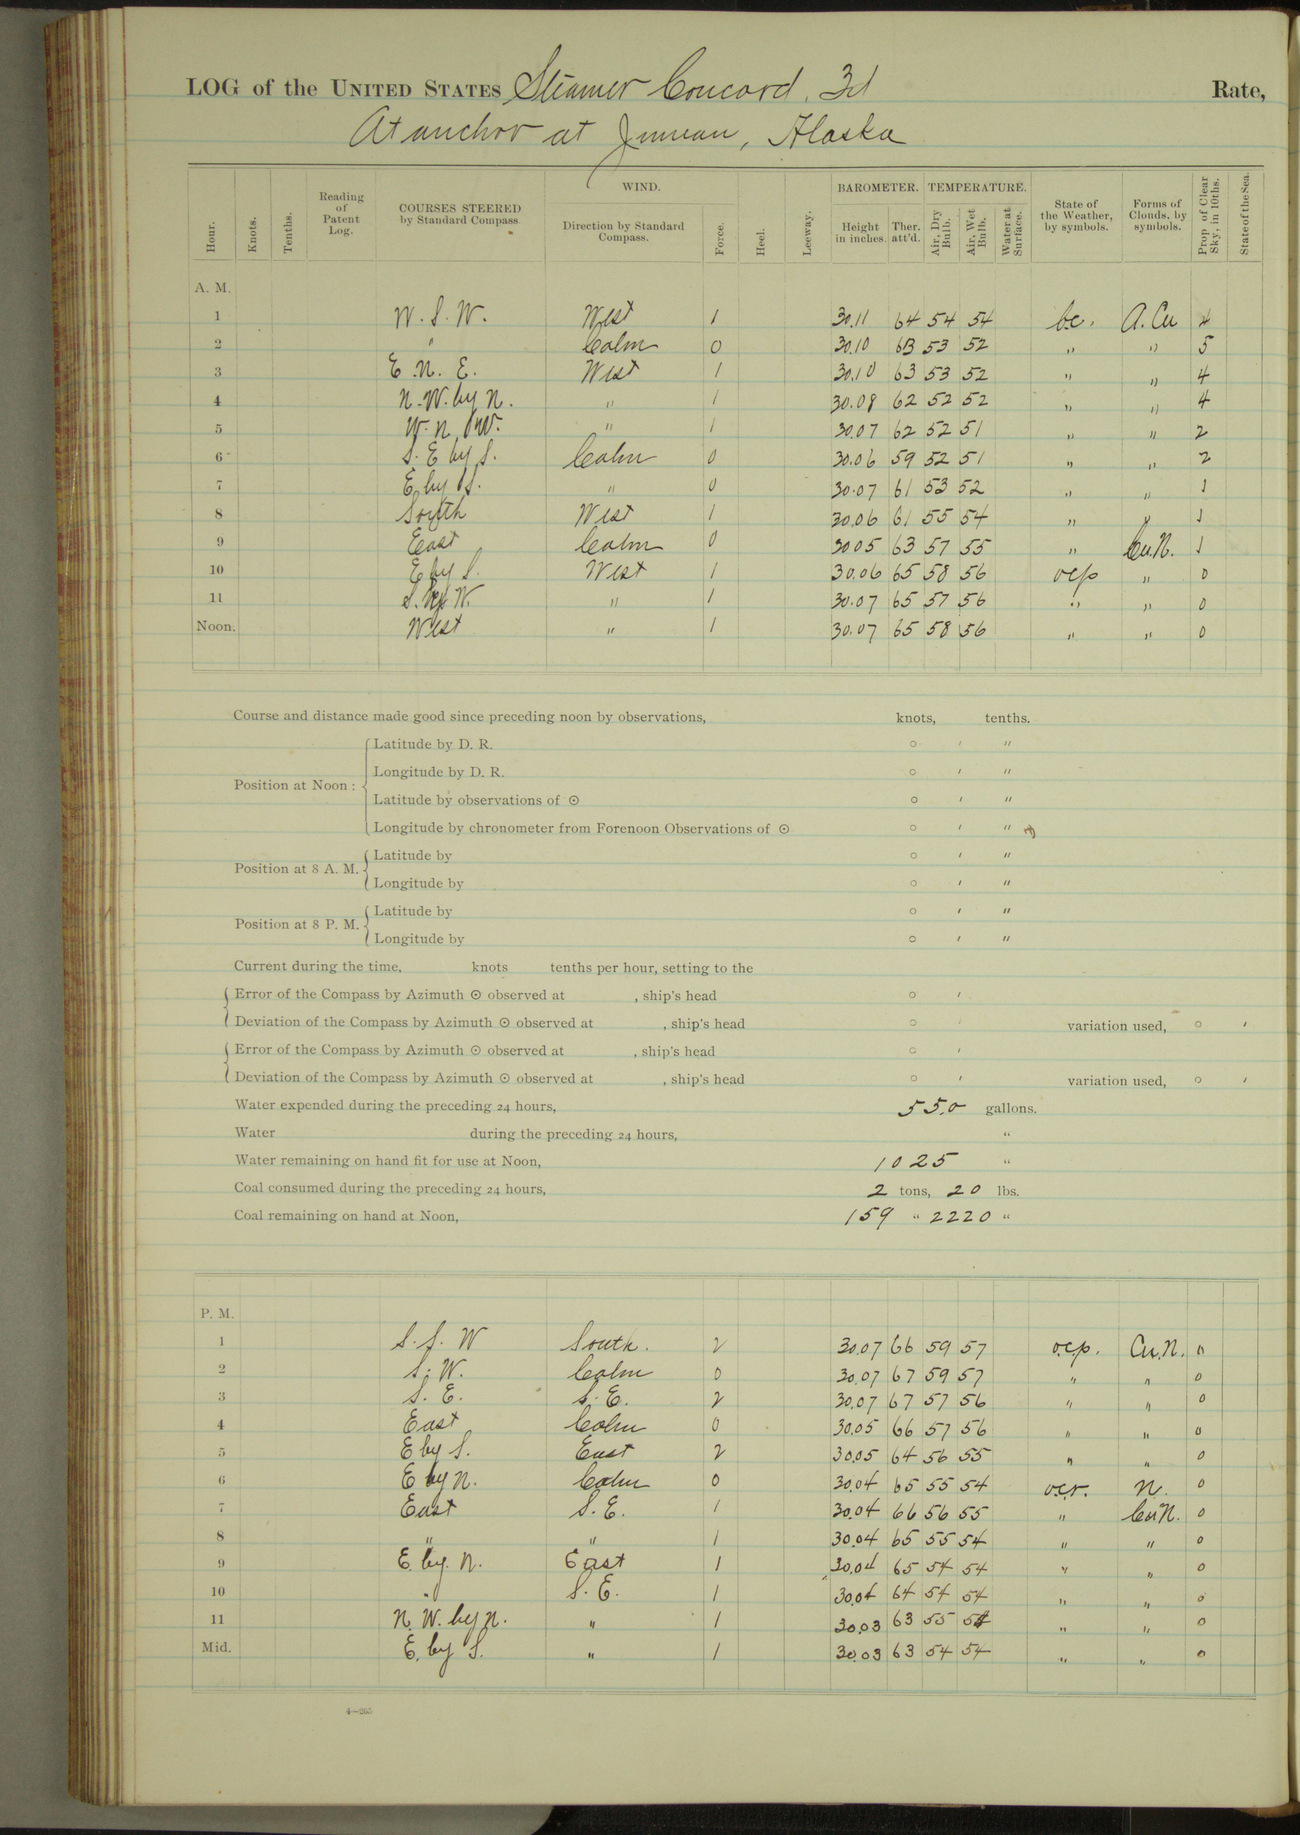 LOG of the UNITED STATES Steamer Concord, 3d Rate,
At anchor at Juneau, Alaska
Hour. Knots. Tenths. Reading of Patent Log. COURSES STEERED by Standard Compass WIND. Direction by Standard Compass. Force. Heel. Leeway. BAROMETER. Height in inches. Ther. att'd. TEMPERATURE. Air, Dry Bulb. Air, Wet Bulb. Water at Surface. State of the Weather, by symbols. Forms of Clouds, by symbols. Prop of Clear Sky, in 10ths. State of the Sea.
A. M.
1 W. S. W. West 1 30.11 64 54 54 b.c. A. Cu 4
2 " Calm 0 30.10 63 53 52 " " 5
3 E. N. E. West 1 30.10 63 53 52 " " 4
4 N. W. by N. " 1 30.08 62 52 52 " " 4
5 W. N. W. " 1 30.07 62 52 51 " " 2
6 S. E by S. Calm 0 30.06 59 52 51 " " 2
7 E by S. " 0 30.07 61 53 52 " " 1
8 South West 1 30.06 61 55 54 " " 1
9 East Calm 0 30 05 63 57 55 " Cu.N. 1
10 E by S. West 1 30.06 65 58 56 ocp " 0
11 S. by W. " 1 30.07 65 57 56 " " 0
Noon. West " 1 30.07 65 58 56 " " 0
Course and distance made good since preceding noon by observations, knots, tenths.
Position at Noon :
Latitude by D. R. ○ ′ ″
Longitude by D. R. ○ ′ ″
Latitude by observations of ⊙ ○ ′ ″
Longitude by chronometer from Forenoon Observations of ⊙ ○ ′ ″
Position at 8 A. M.
Latitude by ○ ′ ″
Longitude by ○ ′ ″
Position at 8 P. M.
Latitude by ○ ′ ″
Longitude by ○ ′ ″
Current during the time, knots tenths per hour, setting to the
Error of the Compass by Azimuth ⊙ observed at , ship's head ○ ′
Deviation of the Compass by Azimuth ⊙ observed at , ship's head ○ ′ variation used, ○ ′
Error of the Compass by Azimuth ⊙ observed at , ship's head ○ ′
Deviation of the Compass by Azimuth ⊙ observed at , ship's head ○ ′ variation used, ○ ′
Water expended during the preceding 24 hours, 550 gallons.
Water during the preceding 24 hours, "
Water remaining on hand fit for use at Noon, 1025 "
Coal consumed during the preceding 24 hours, 2 tons, 20 lbs.
Coal remaining on hand at Noon, 159 " 2220 "
P. M.
1 S. S. W South. 2 30.07 66 59 57 o.c.p. Cu.N. 0
2 S. W. Calm 0 30.07 67 59 57 " " 0
3 S. E. S. E. 2 30.07 67 57 56 " " 0
4 East Calm 0 30.05 66 57 56 " " 0
5 E by S. East 2 30.05 64 56 55 " " 0
6 E by N. Calm 0 30.04 65 55 54 o.c.r. N. 0
7 East S. E. 1 30.04 66 56 55 " Cu N. 0
8 " " 1 30.04 65 55 54 " " 0
9 E. by. N. East 1 30.04 65 54 54 " " 0
10 " S. E. 1 30.04 64 54 54 " " 0
11 N. W. by N. " 1 30.03 63 55 54 " " 0
Mid. E. by S. " 1 30.03 63 54 54 " " 0
4—265